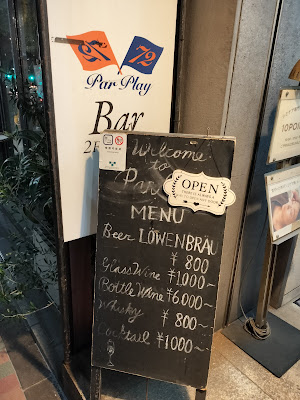 72
Par Play
Bar
2F
Welcome
to
Par
OPEN
MENU
Beer LÖWENBRÄU
¥ 800
Glass Wine ¥1,000~
Bottle Wine ¥6,000~
Whisky ¥ 800~
Cocktail ¥1000~
10PO